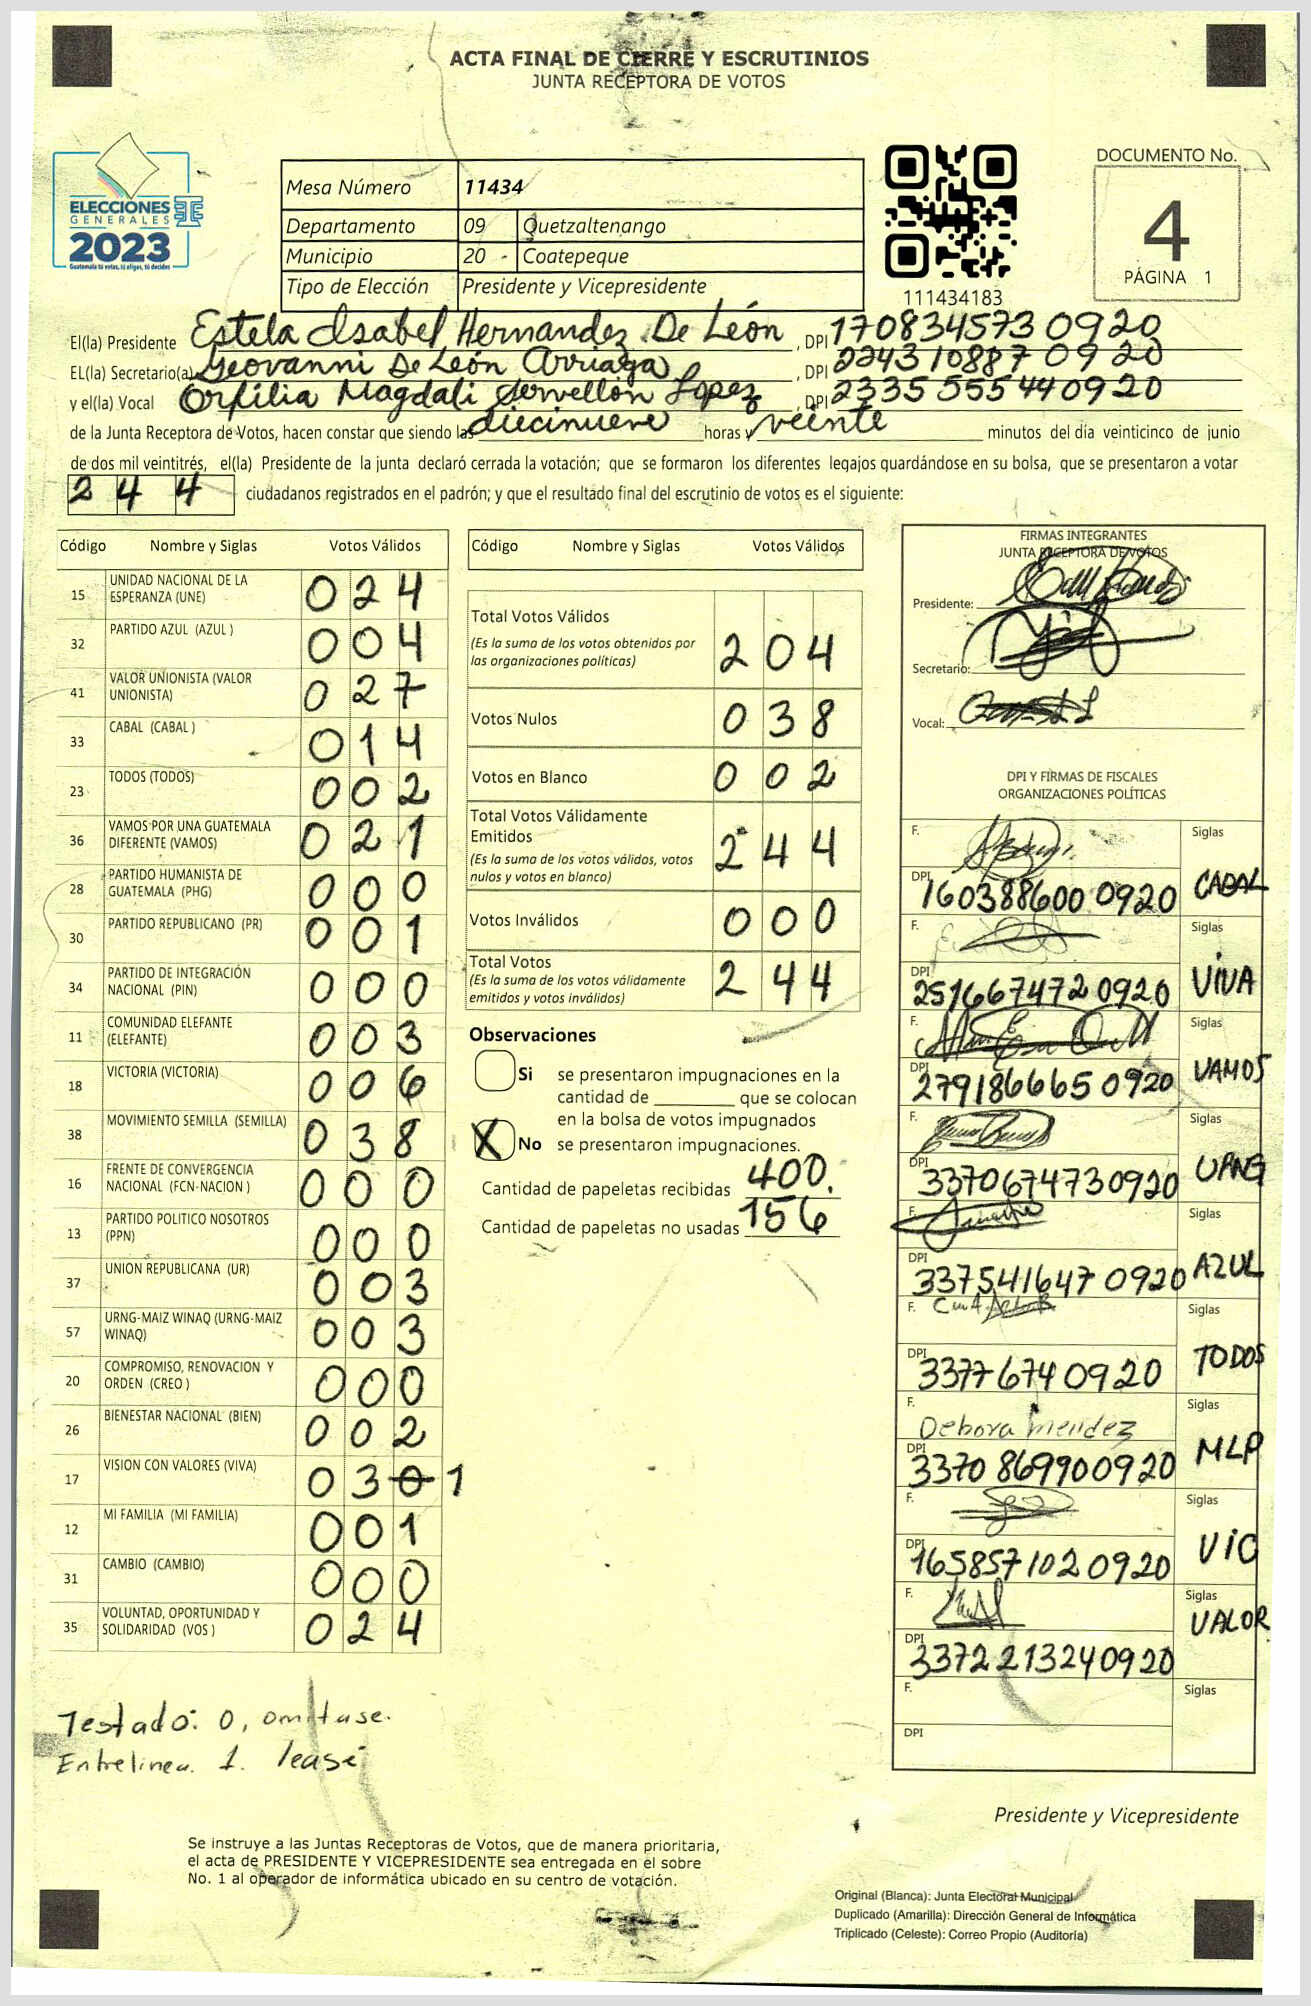 ACTA FINAL DE CIERRE Y ESCRUTINIOS
JUNTA RECEPTORA DE VOTOS
ELECCIONES
GENERALES
2023
Guatemala tú votas, tú eliges, tú decides
Mesa Número 11434
Departamento 09 Quetzaltenango
Municipio 20 - Coatepeque
Tipo de Elección Presidente y Vicepresidente
111434183
DOCUMENTO No.
4
PÁGINA 1
El(la) Presidente Estela Isabel Hernandez De León, DPI 170834573 0920
EL(la) Secretario(a) Geovanni De León Arriaga, DPI 224310887 0920
y el(la) Vocal Orfilia Magdali Servellón Lopez, DPI 2335 55544 0920
de la Junta Receptora de Votos, hacen constar que siendo las diecinueve horas y veinte minutos del día veinticinco de junio
de dos mil veintitrés, el(la) Presidente de la junta declaró cerrada la votación; que se formaron los diferentes legajos guardándose en su bolsa, que se presentaron a votar
244 ciudadanos registrados en el padrón; y que el resultado final del escrutinio de votos es el siguiente:
Código Nombre y Siglas Votos Válidos
15 UNIDAD NACIONAL DE LA ESPERANZA (UNE) 024
32 PARTIDO AZUL (AZUL ) 004
41 VALOR UNIONISTA (VALOR UNIONISTA) 027
33 CABAL (CABAL ) 014
23 TODOS (TODOS) 002
36 VAMOS POR UNA GUATEMALA DIFERENTE (VAMOS) 021
28 PARTIDO HUMANISTA DE GUATEMALA (PHG) 000
30 PARTIDO REPUBLICANO (PR) 001
34 PARTIDO DE INTEGRACIÓN NACIONAL (PIN) 000
11 COMUNIDAD ELEFANTE (ELEFANTE) 003
18 VICTORIA (VICTORIA) 006
38 MOVIMIENTO SEMILLA (SEMILLA) 038
16 FRENTE DE CONVERGENCIA NACIONAL (FCN-NACION ) 000
13 PARTIDO POLITICO NOSOTROS (PPN) 000
37 UNION REPUBLICANA (UR) 003
57 URNG-MAIZ WINAQ (URNG-MAIZ WINAQ) 003
20 COMPROMISO, RENOVACION Y ORDEN (CREO ) 000
26 BIENESTAR NACIONAL (BIEN) 002
17 VISION CON VALORES (VIVA) 030 1
12 MI FAMILIA (MI FAMILIA) 001
31 CAMBIO (CAMBIO) 000
35 VOLUNTAD, OPORTUNIDAD Y SOLIDARIDAD (VOS ) 024
Testado: 0, omitase.
Entrelinea. 1. lease
Código Nombre y Siglas Votos Válidos
Total Votos Válidos
(Es la suma de los votos obtenidos por
las organizaciones políticas) 204
Votos Nulos 038
Votos en Blanco 002
Total Votos Válidamente
Emitidos
(Es la suma de los votos válidos, votos
nulos y votos en blanco) 244
Votos Inválidos 000
Total Votos
(Es la suma de los votos válidamente
emitidos y votos inválidos) 244
Observaciones
Si se presentaron impugnaciones en la
cantidad de ________ que se colocan
en la bolsa de votos impugnados
X No se presentaron impugnaciones.
Cantidad de papeletas recibidas 400.
Cantidad de papeletas no usadas 156
FIRMAS INTEGRANTES
JUNTA RECEPTORA DE VOTOS
Presidente:
Secretario:
Vocal:
DPI Y FIRMAS DE FISCALES
ORGANIZACIONES POLÍTICAS
F. Siglas
DPI 160388600 0920 CABAL
F. Siglas
DPI 251667472 0920 VIVA
F. Siglas
DPI 279186665 0920 VAMOS
F. Siglas
DPI 337067473 0920 URNG
F. Siglas
DPI 337541647 0920 AZUL
F. Siglas
DPI 3377674 0920 TODOS
F. Debora Mendez Siglas
DPI 3370 86990 0920 MLP
F. Siglas
DPI 165857102 0920 VIC
F. Siglas
DPI 3372 21324 0920 VALOR
F. Siglas
DPI
Presidente y Vicepresidente
Se instruye a las Juntas Receptoras de Votos, que de manera prioritaria,
el acta de PRESIDENTE Y VICEPRESIDENTE sea entregada en el sobre
No. 1 al operador de informática ubicado en su centro de votación.
Original (Blanca): Junta Electoral Municipal
Duplicado (Amarilla): Dirección General de Informática
Triplicado (Celeste): Correo Propio (Auditoría)